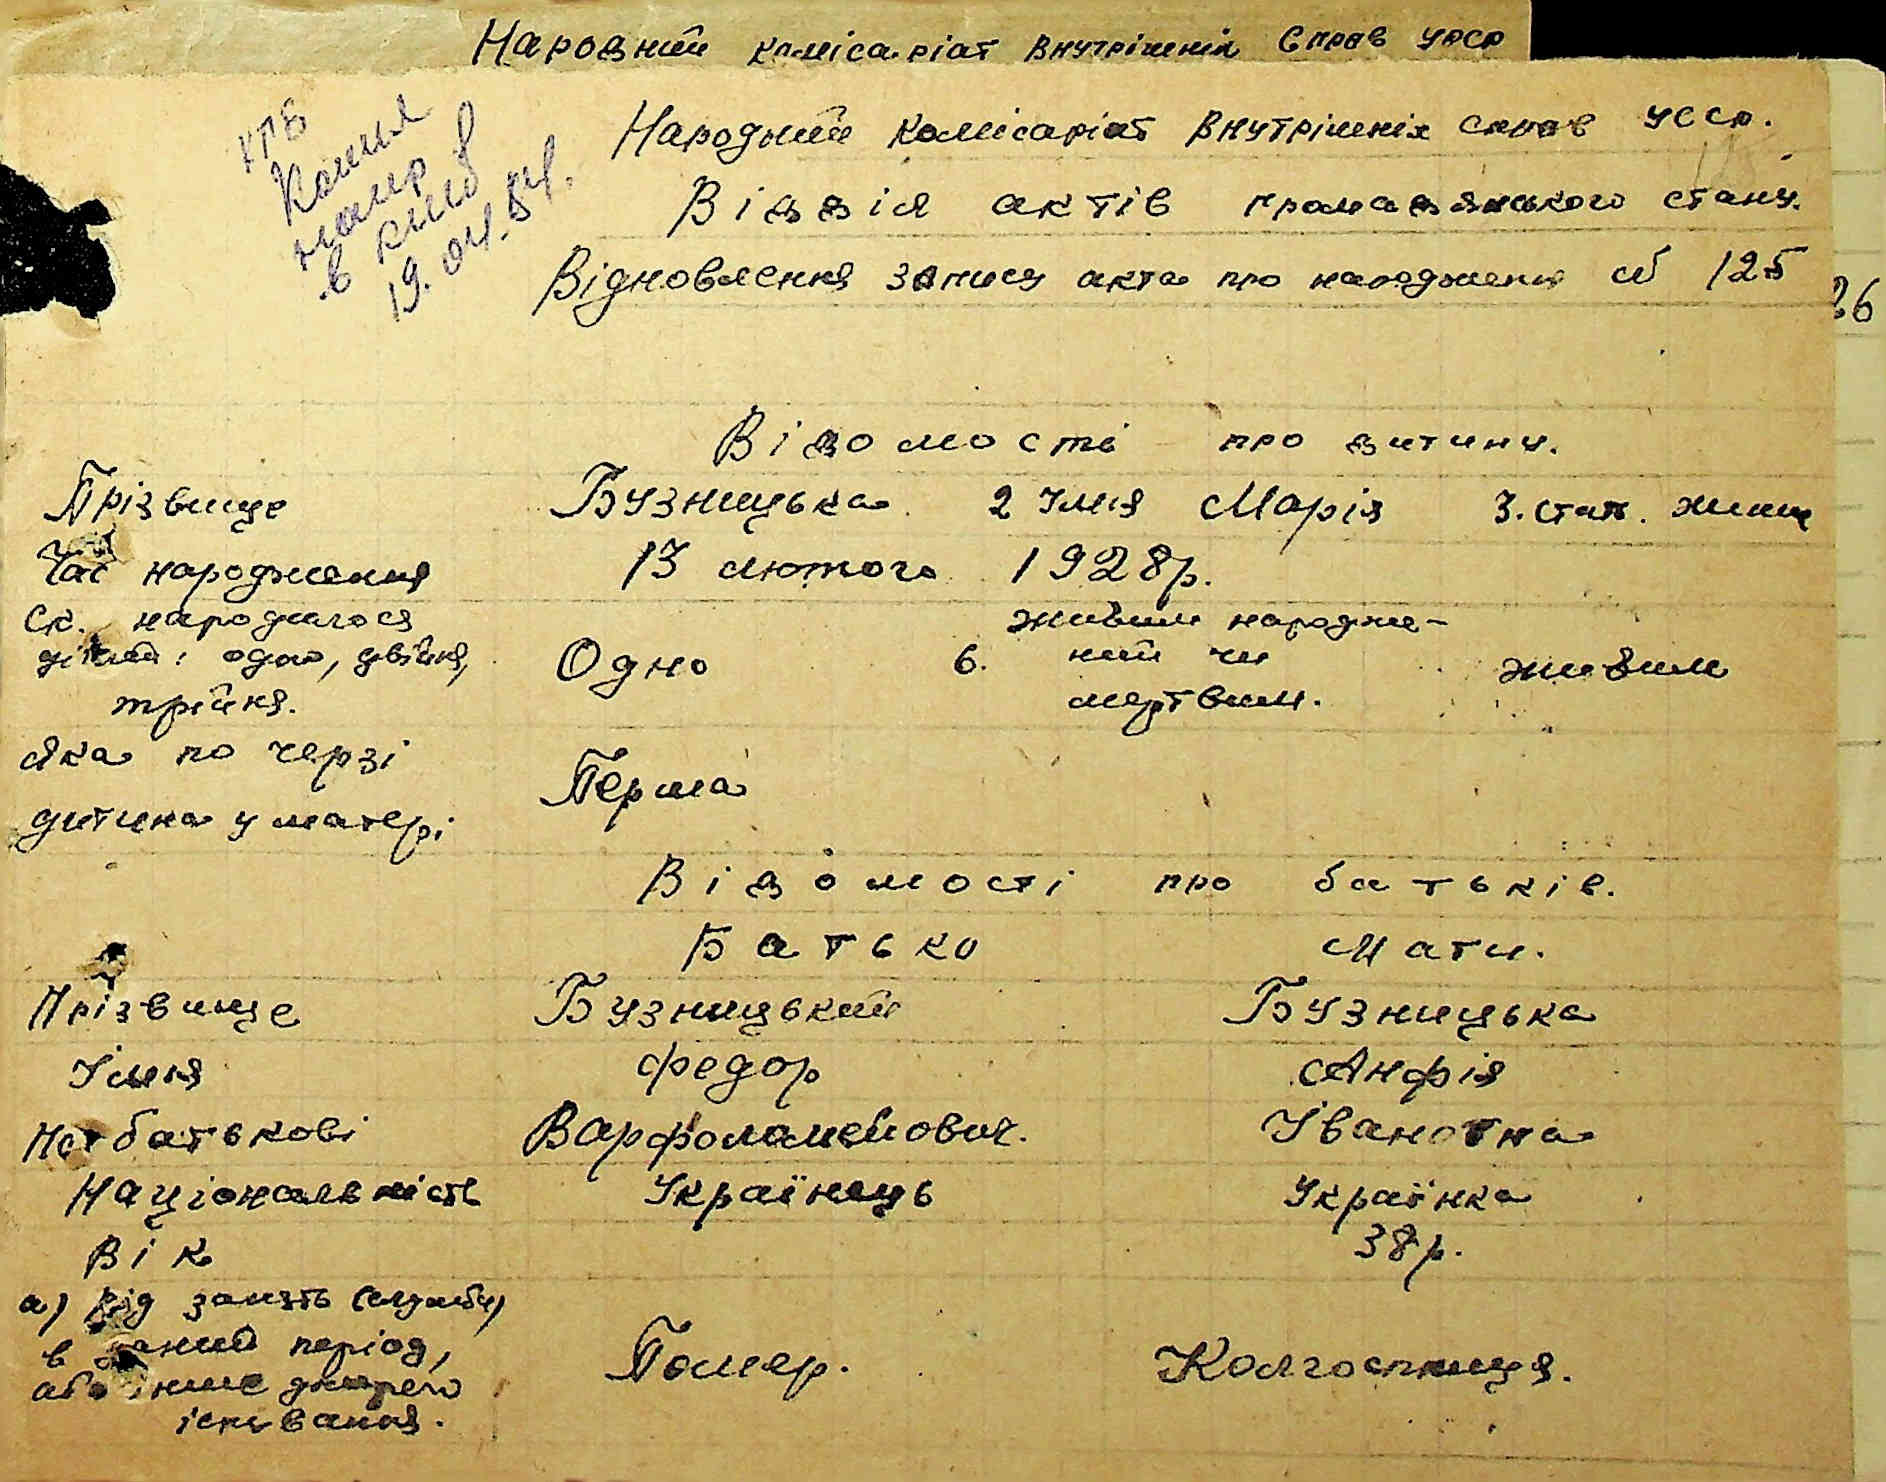 Народний комісаріат внутрішніх справ УРСР
Народний комісаріат внутрішніх справ УССР.
Відділ актів громадянського стану.
Відновлення запису акта про народження № 125
26
Копия
в
19.04.84.
Відомості про дитину.
Прізвище Бузницька 2 Імия Марія 3. стать. жиноч
Час народження 13 лютого 1928р.
ск. народилося живим народже-
дітей: одно, двійня, Одно 6. ний чи живим
трійня. мертвим.
Яка по черзі
Перша
дитина у матері
Відомості про батьків.
Батько Мати.
Прізвище Бузницький Бузницька
Імия Федор Анфія
По батькові Варфоломейович. Івановна
Національність Українець Українка
Вік 38р.
а) Від занять (служби)
в даний період, Помер. Колгоспниця.
або інше джерело
існування.